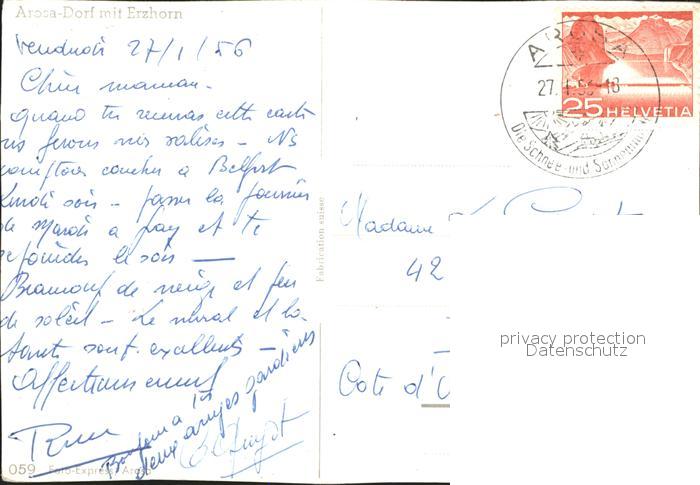 Arosa-Dorf mit Erzhorn
Vendredi 27/1/56
Chère maman.
quand tu recevras cette carte
ns ferons nos valises - Ns
comptons coucher à Belfort
Lundi soir - passer la journée
de Mardi à et te
rejoindre le soir —
Beaucoup de neige et peu
de soleil - Le moral et la
santé sont excellents -
Affectueusement
Bonjour à
deux anges gardiens
059 Foto-Express, Arosa
Fabrication suisse
AROSA
27. 1.56-18
Die Schnee- und Sonnen
25 HELVETIA
Madame
42
privacy protection
Datenschutz
Cote d'